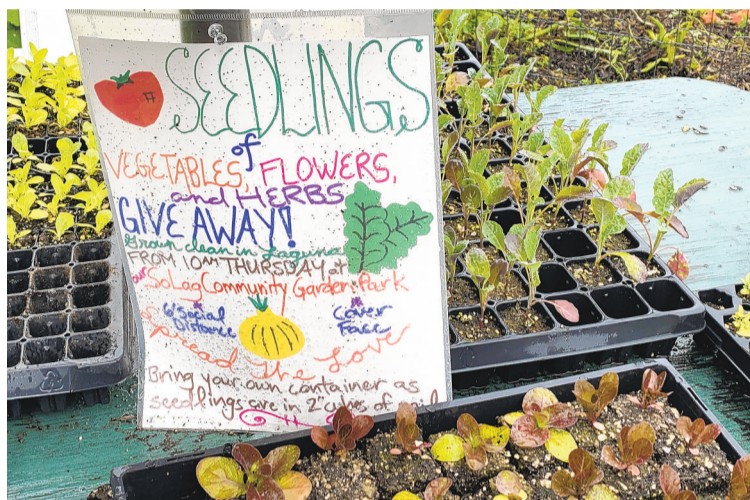 SEEDLINGS
of
VEGETABLES, FLOWERS,
and HERBS
GIVE AWAY!
Grown clean in Laguna
FROM 10AM THURSDAY at
our SoLagCommunity Garden Park
6' Social Distance
Cover Face
Spread the Love
Bring your own container as
seedlings are in 2" cubes of soil